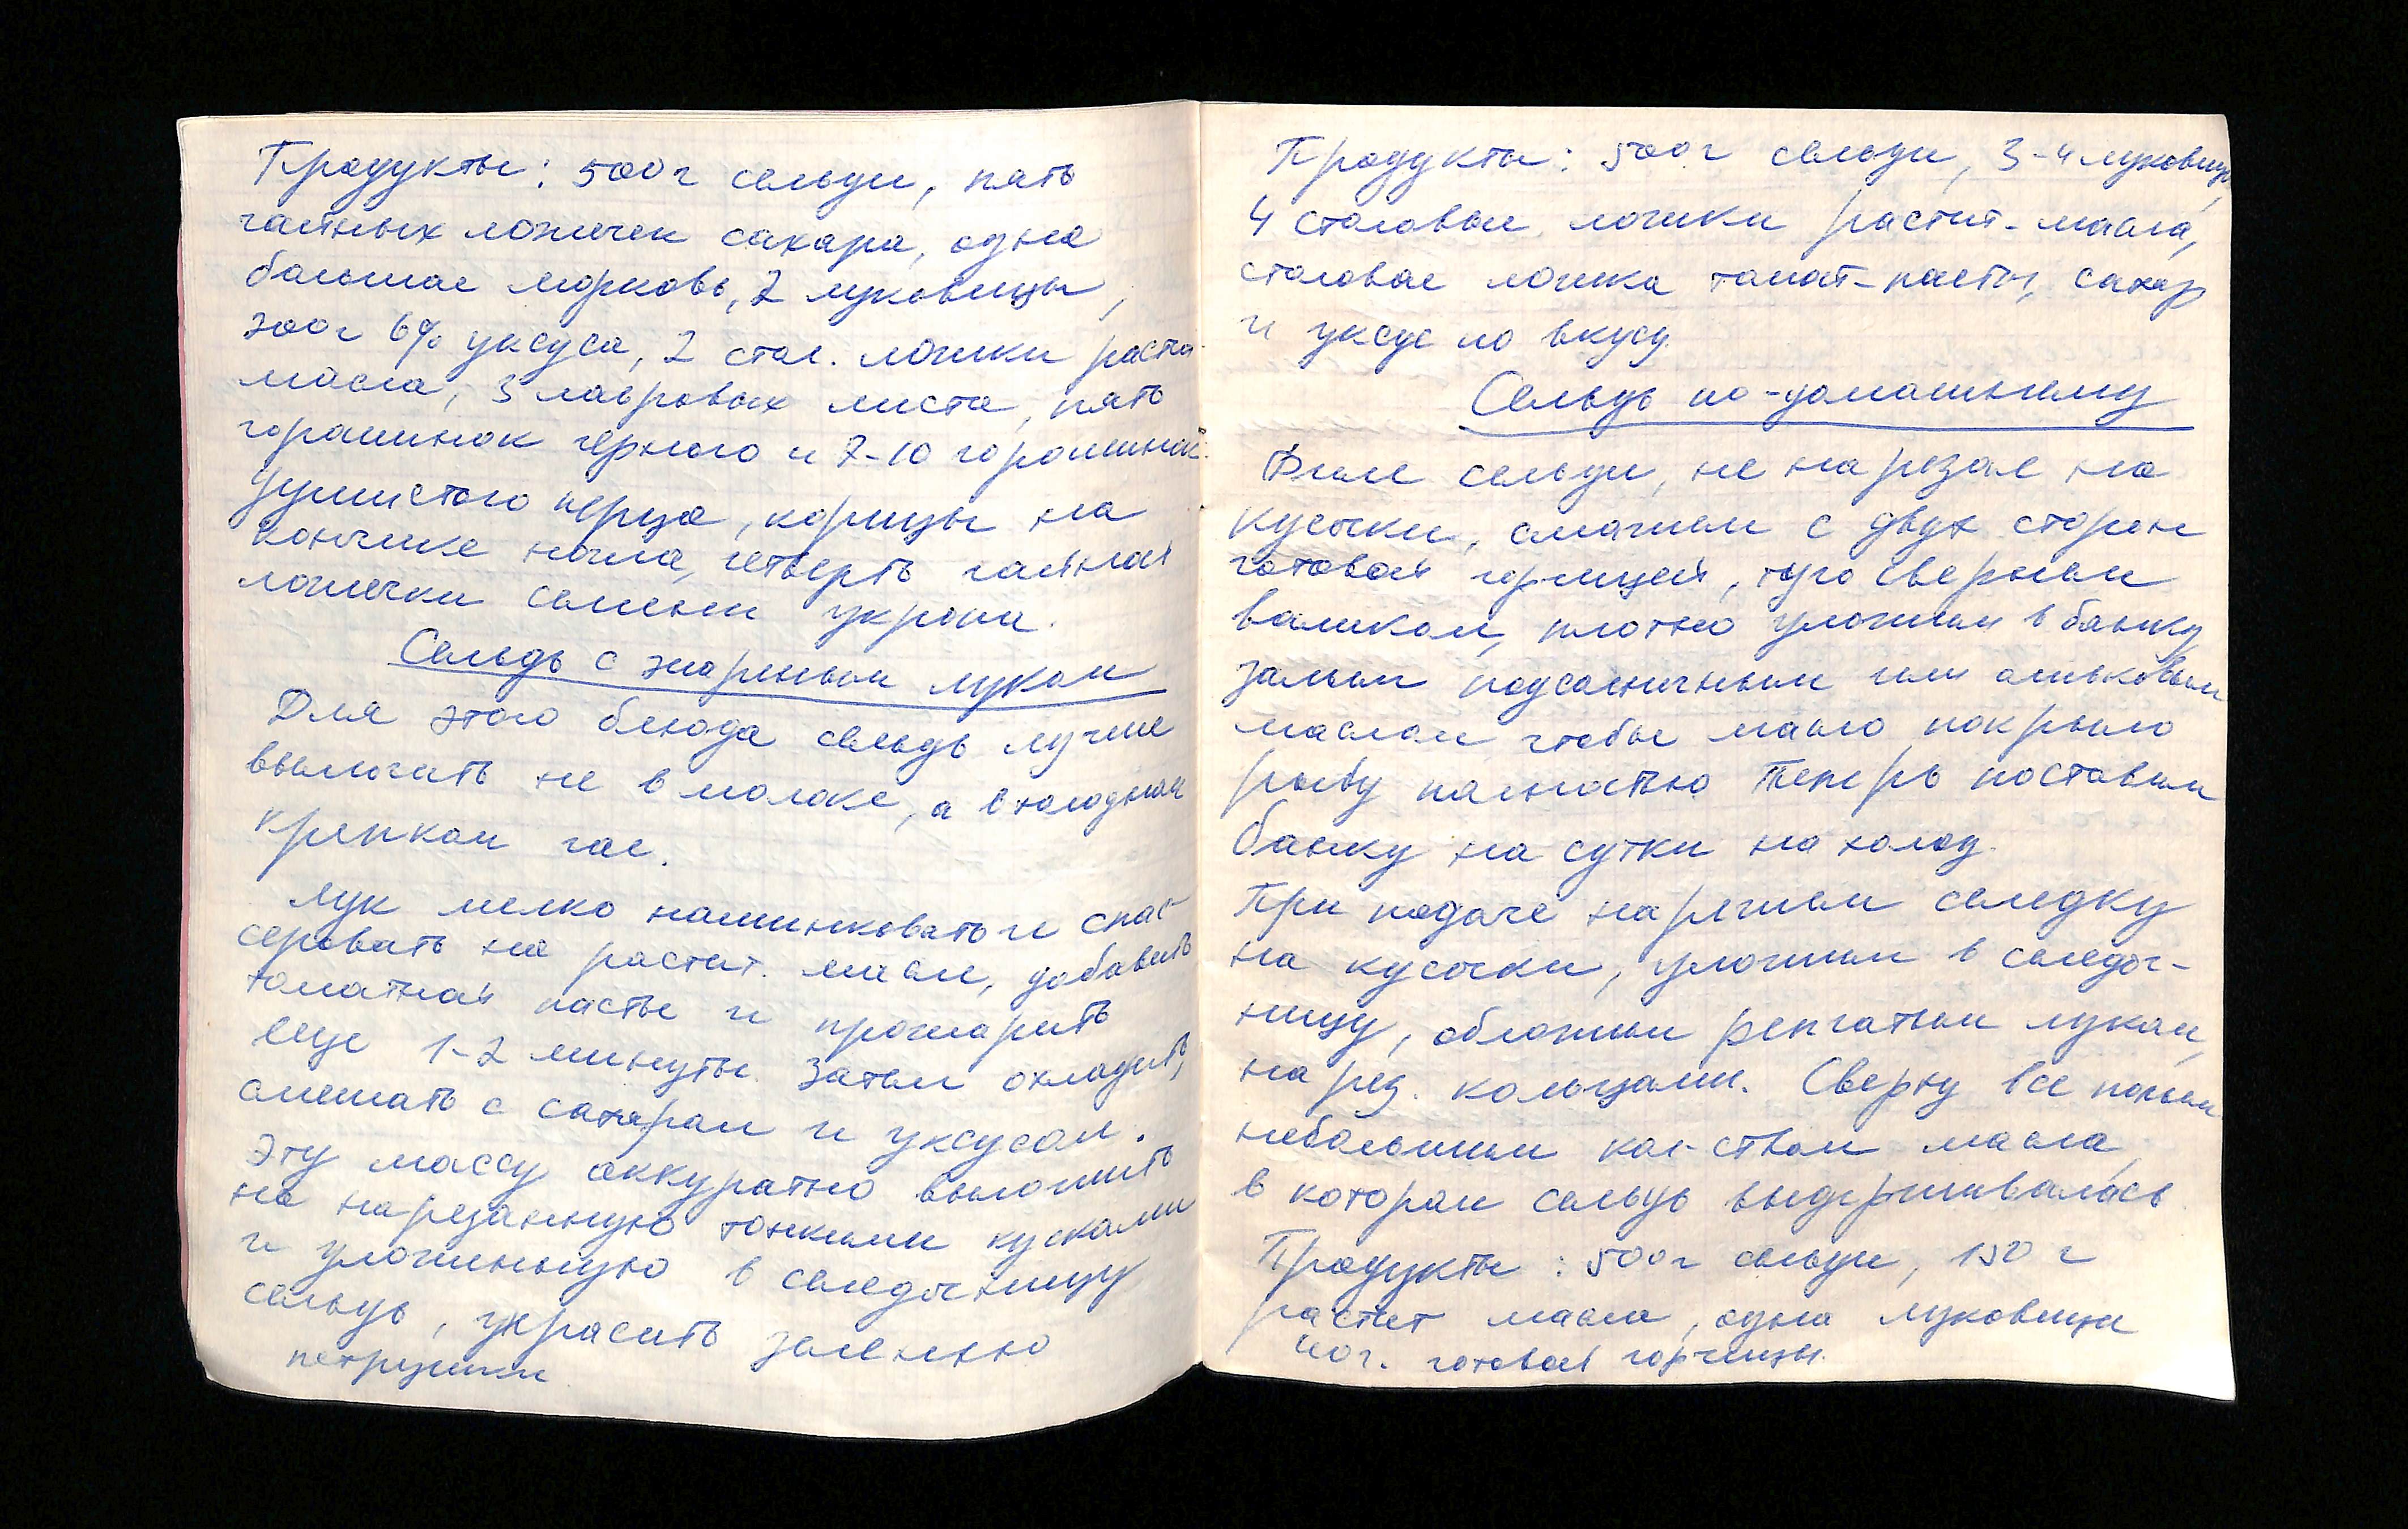 Продукты: 500г сельди, пять
чайных ложечек сахара, одна
большая морковь, 2 луковицы,
300г 6% уксуса, 2 стол. ложки растит.
масла, 3 лавровых листа, пять
горошинок черного и 7-10 горошинок
душистого перца, корицы на
кончике ножа, четверть чайной
ложечки семени укропа.
Сельдь с жареным луком
Для этого блюда сельдь лучше
вымочить не в молоке, а в холодном
крепком чае.
Лук мелко нашинковать и спас-
серовать на растит. масле, добавить
томатной пасты и прожарить
еще 1-2 минуты. Затем охладить,
смешать с сахаром и уксусом.
Эту массу аккуратно выложить
на нарезанную тонкими кусками
и уложенную в селедочницу
сельдь, украсить зеленью
петрушки
Продукты: 500г сельди, 3-4 луковицы,
4 столовые ложки растит. масла,
столовая ложка томат-пасты, сахар
и уксус по вкусу.
Сельдь по-домашнему
Филе сельди, не нарезая на
кусочки, смажем с двух сторон
готовой горчицей, туго свернем
валиком, плотно уложим в банку
зальем подсолнечным или оливковым
маслом чтобы масло покрыло
рыбу полностью Теперь поставим
банку на сутки на холод.
При подаче нарежем селедку
на кусочки, уложим в селедоч-
ницу, обложим репчатым луком,
нарез. кольцами. Сверху все польем
небольшим кол-ством масла,
в котором сельдь выдерживалась.
Продукты: 500г сельди, 150 г
растит масла, одна луковица
40г. готовой горчицы.